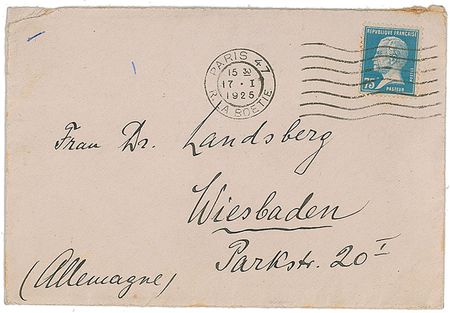 PARIS 47
15 30
17 · I
1925
R. LA BOETIE
REPUBLIQUE FRANÇAISE
75
PASTEUR
Frau Dr. Landsberg
Wiesbaden
Parkstr. 20 I
(Allemagne)